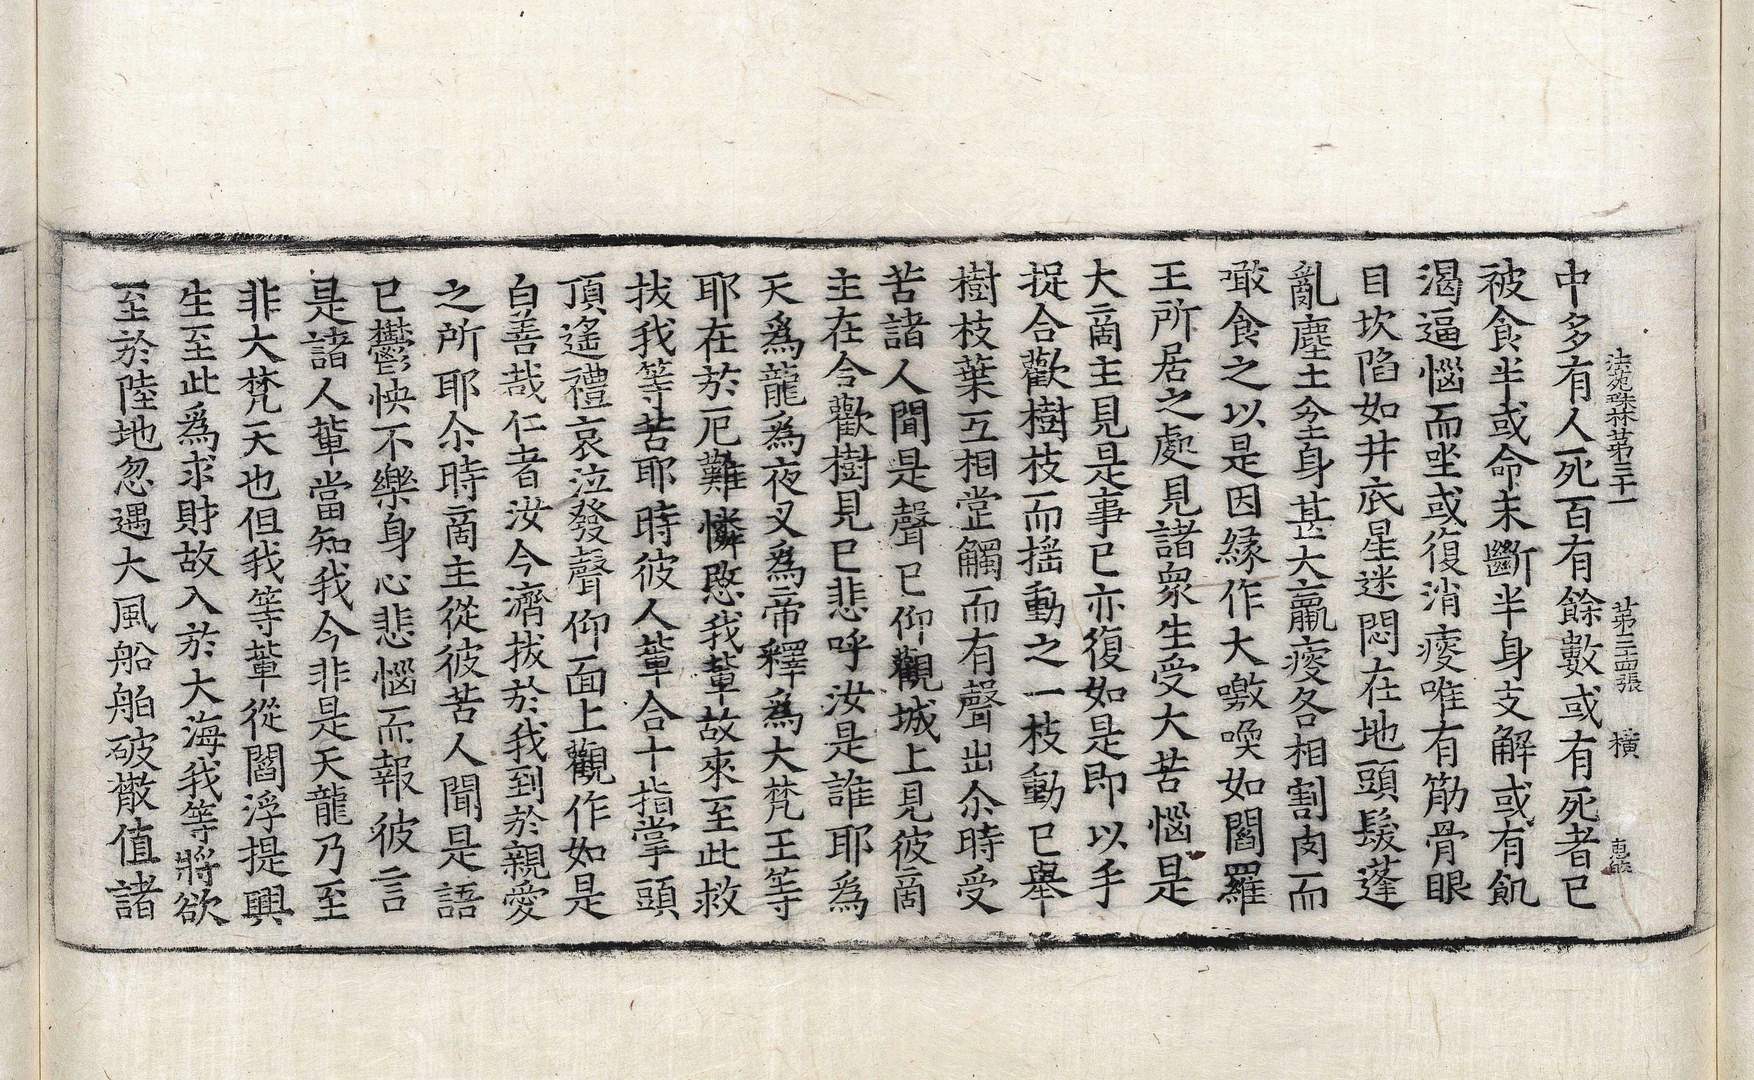 法苑珠林第三十一　第三十四張　橫　惠能
中多有人死百有餘數或有死者已
被食半或命未斷半身支解或有飢
渴逼惱而坐或復消瘦唯有筋骨眼
目坎陷如井底星迷悶在地頭髮蓬
亂塵土坌身甚大羸瘦各相割肉而
噉食之以是因緣作大噭喚如閻羅
王所居之處見諸衆生受大苦惱是
大啇主見是事已亦復如是即以手
捉合歡樹枝而揺動之一枝動已舉
樹枝葉互相掌觸而有聲出尒時受
苦諸人聞是聲已仰觀城上見彼啇
主在合歡樹見已悲呼汝是誰耶爲
天爲龍爲夜叉爲帝釋爲大梵王等
耶在於厄難憐愍我輩故來至此救
拔我等苦耶時彼人輩合十指掌頭
頂遙禮哀泣發聲仰面上觀作如是
白善哉仁者汝今濟拔於我到於親愛
之所耶尒時啇主從彼苦人聞是語
已鬱怏不樂身心悲惱而報彼言
是諸人輩當知我今非是天龍乃至
非大梵天也但我等輩從閻浮提興
生至此爲求財故入於大海我等將欲
至於陸地忽遇大風船舶破散值諸